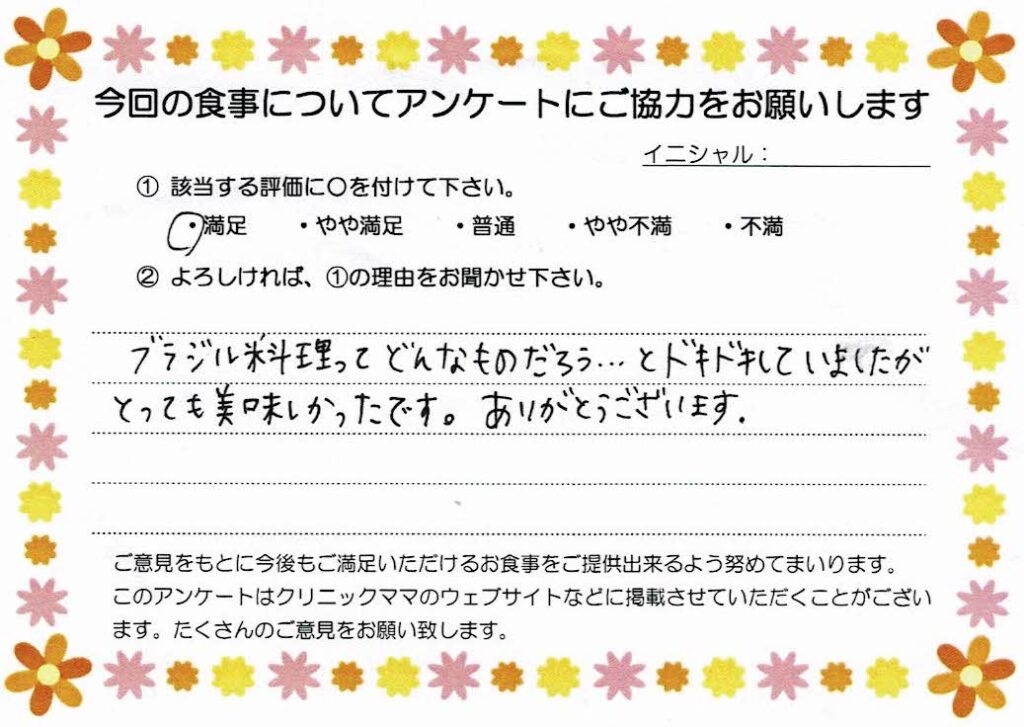 今回の食事についてアンケートにご協力をお願いします
イニシャル：
① 該当する評価に〇を付けて下さい。
・満足 ・やや満足 ・普通 ・やや不満 ・不満
② よろしければ、①の理由をお聞かせ下さい。
ブラジル料理ってどんなものだろう…とドキドキしていましたが
とっても美味しかったです。ありがとうございます.
ご意見をもとに今後もご満足いただけるお食事をご提供出来るよう努めてまいります。
このアンケートはクリニックママのウェブサイトなどに掲載させていただくことがござい
ます。たくさんのご意見をお願い致します。